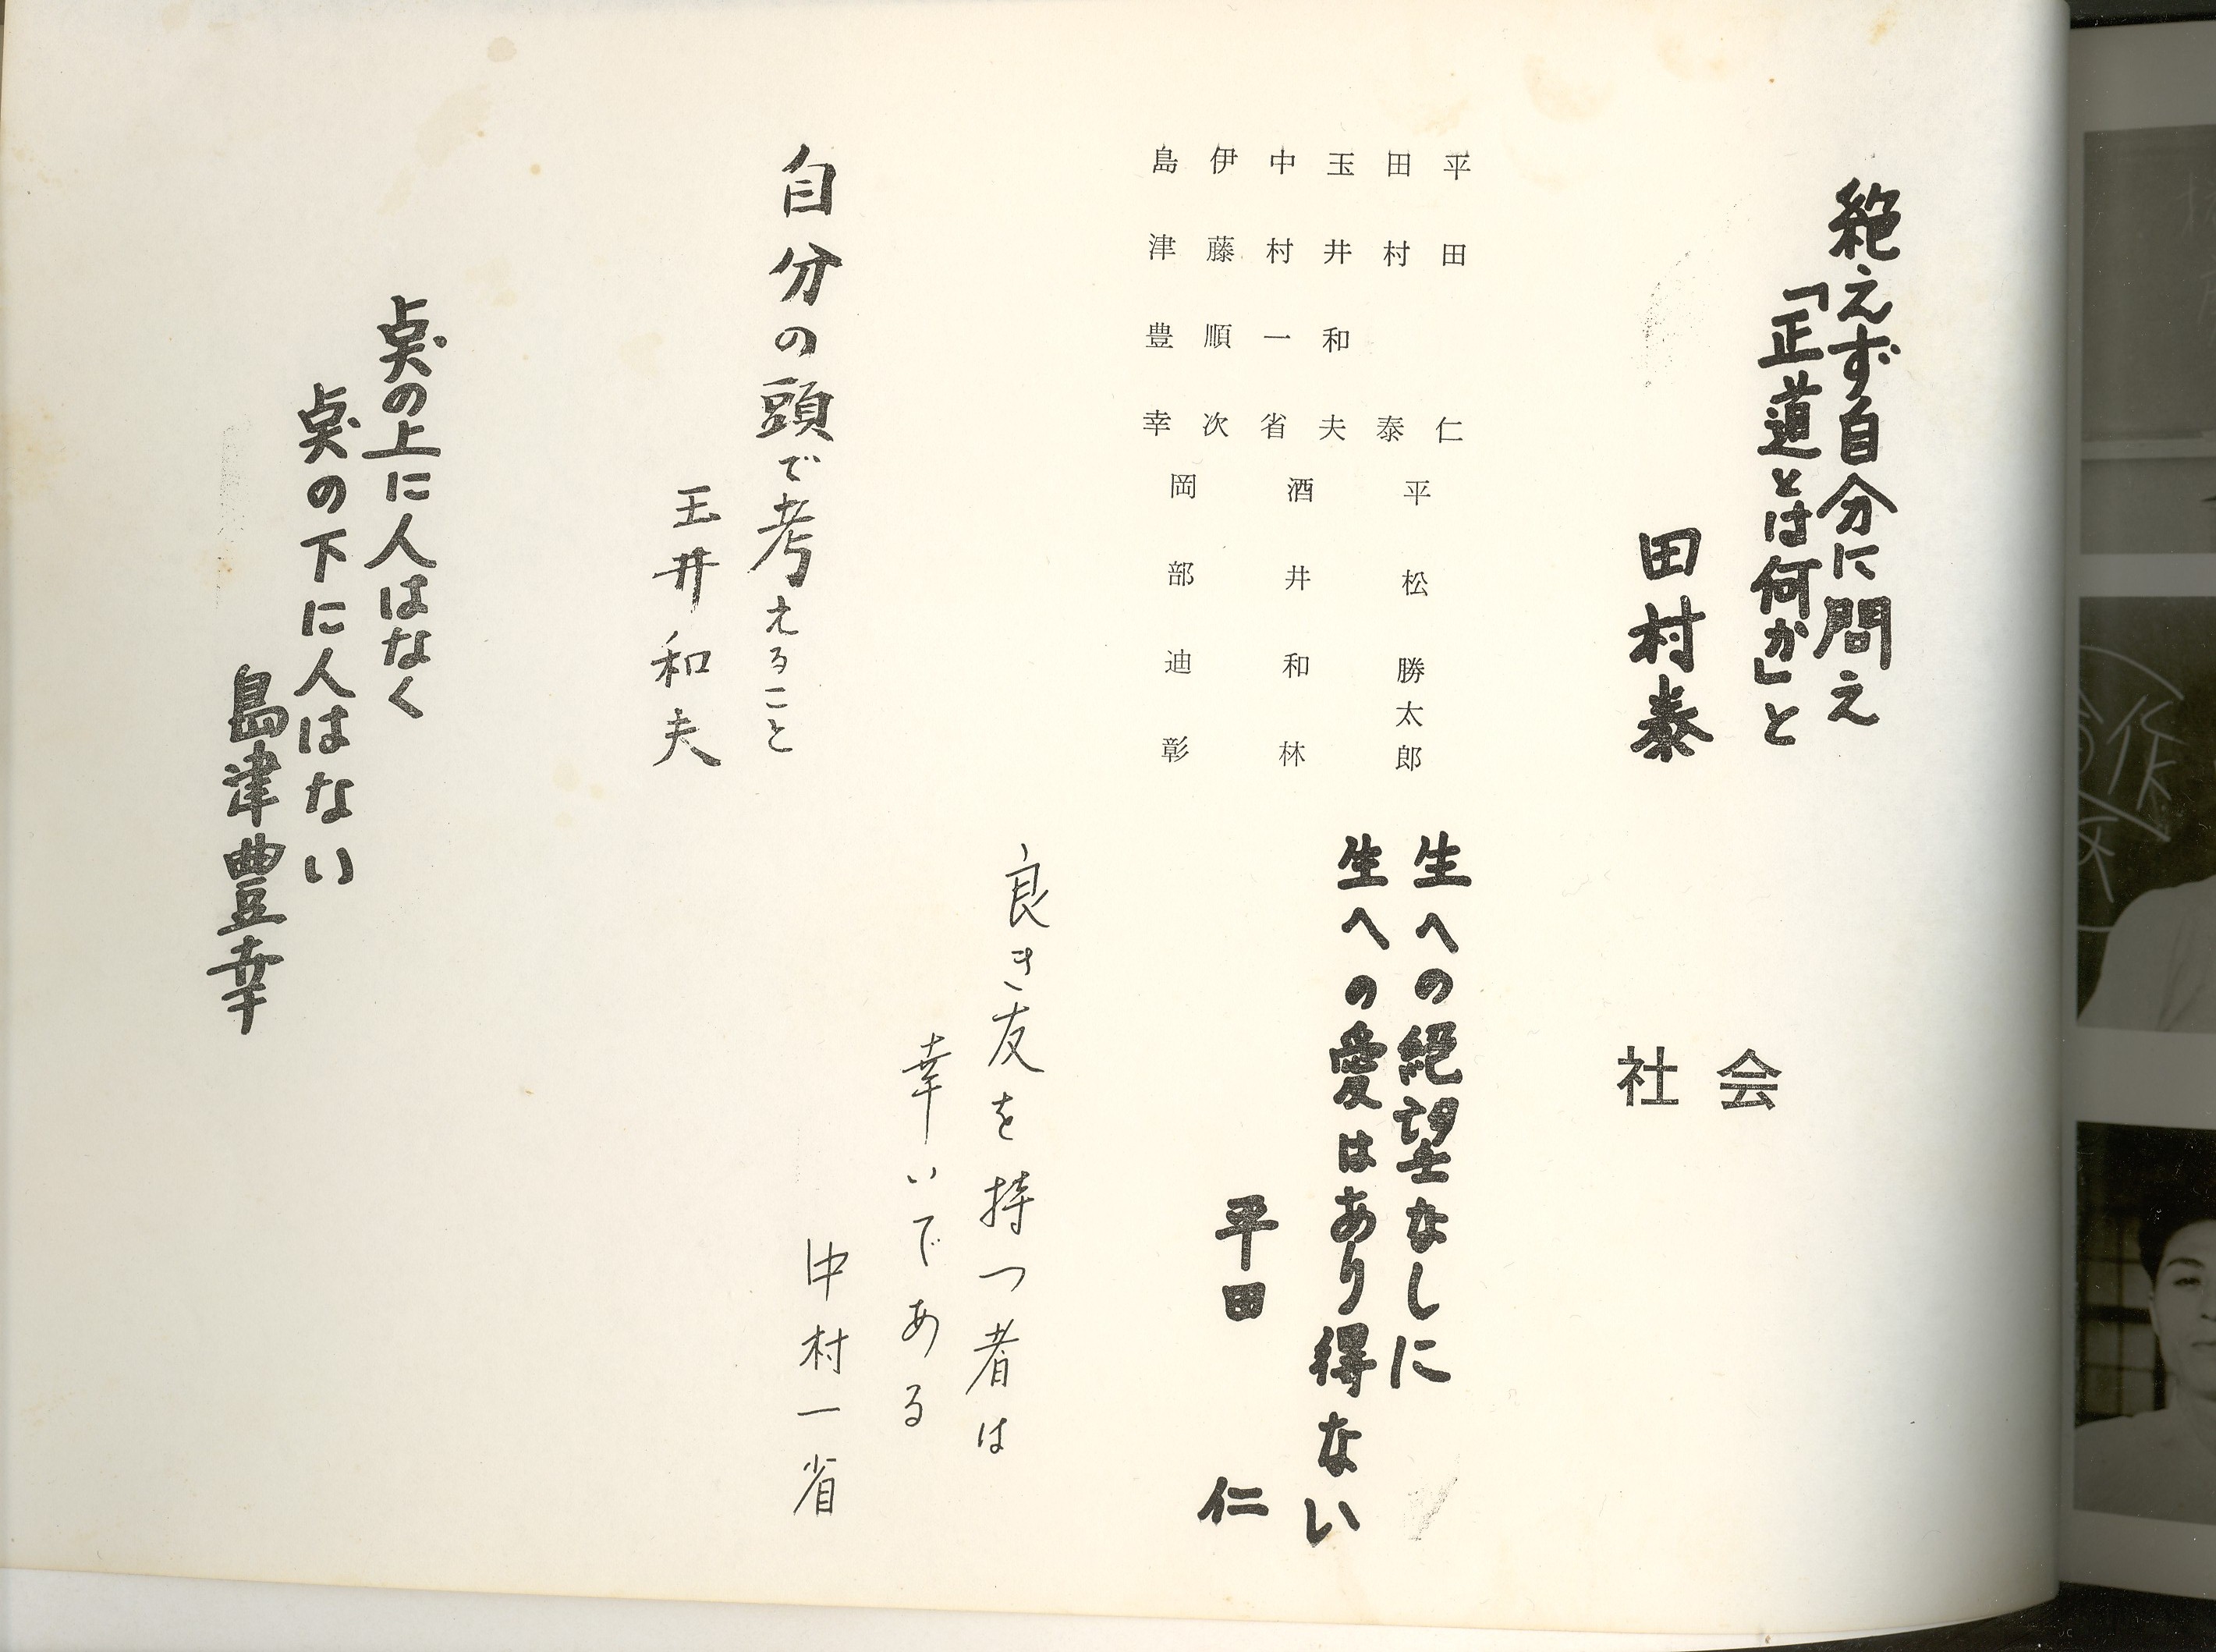 絶えず自分に問え
「正道とは何か」と
田村泰
社会
平田仁
田村泰
玉井和夫
中村一省
伊藤順次
島津豊幸
平松勝太郎
酒井和林
岡部迪彰
生への絶望なしに
生への愛はあり得ない
平田仁
良き友を持つ者は
幸いである
中村一省
自分の頭で考えること
玉井和夫
点の上に人はなく
点の下に人はない
島津豊幸